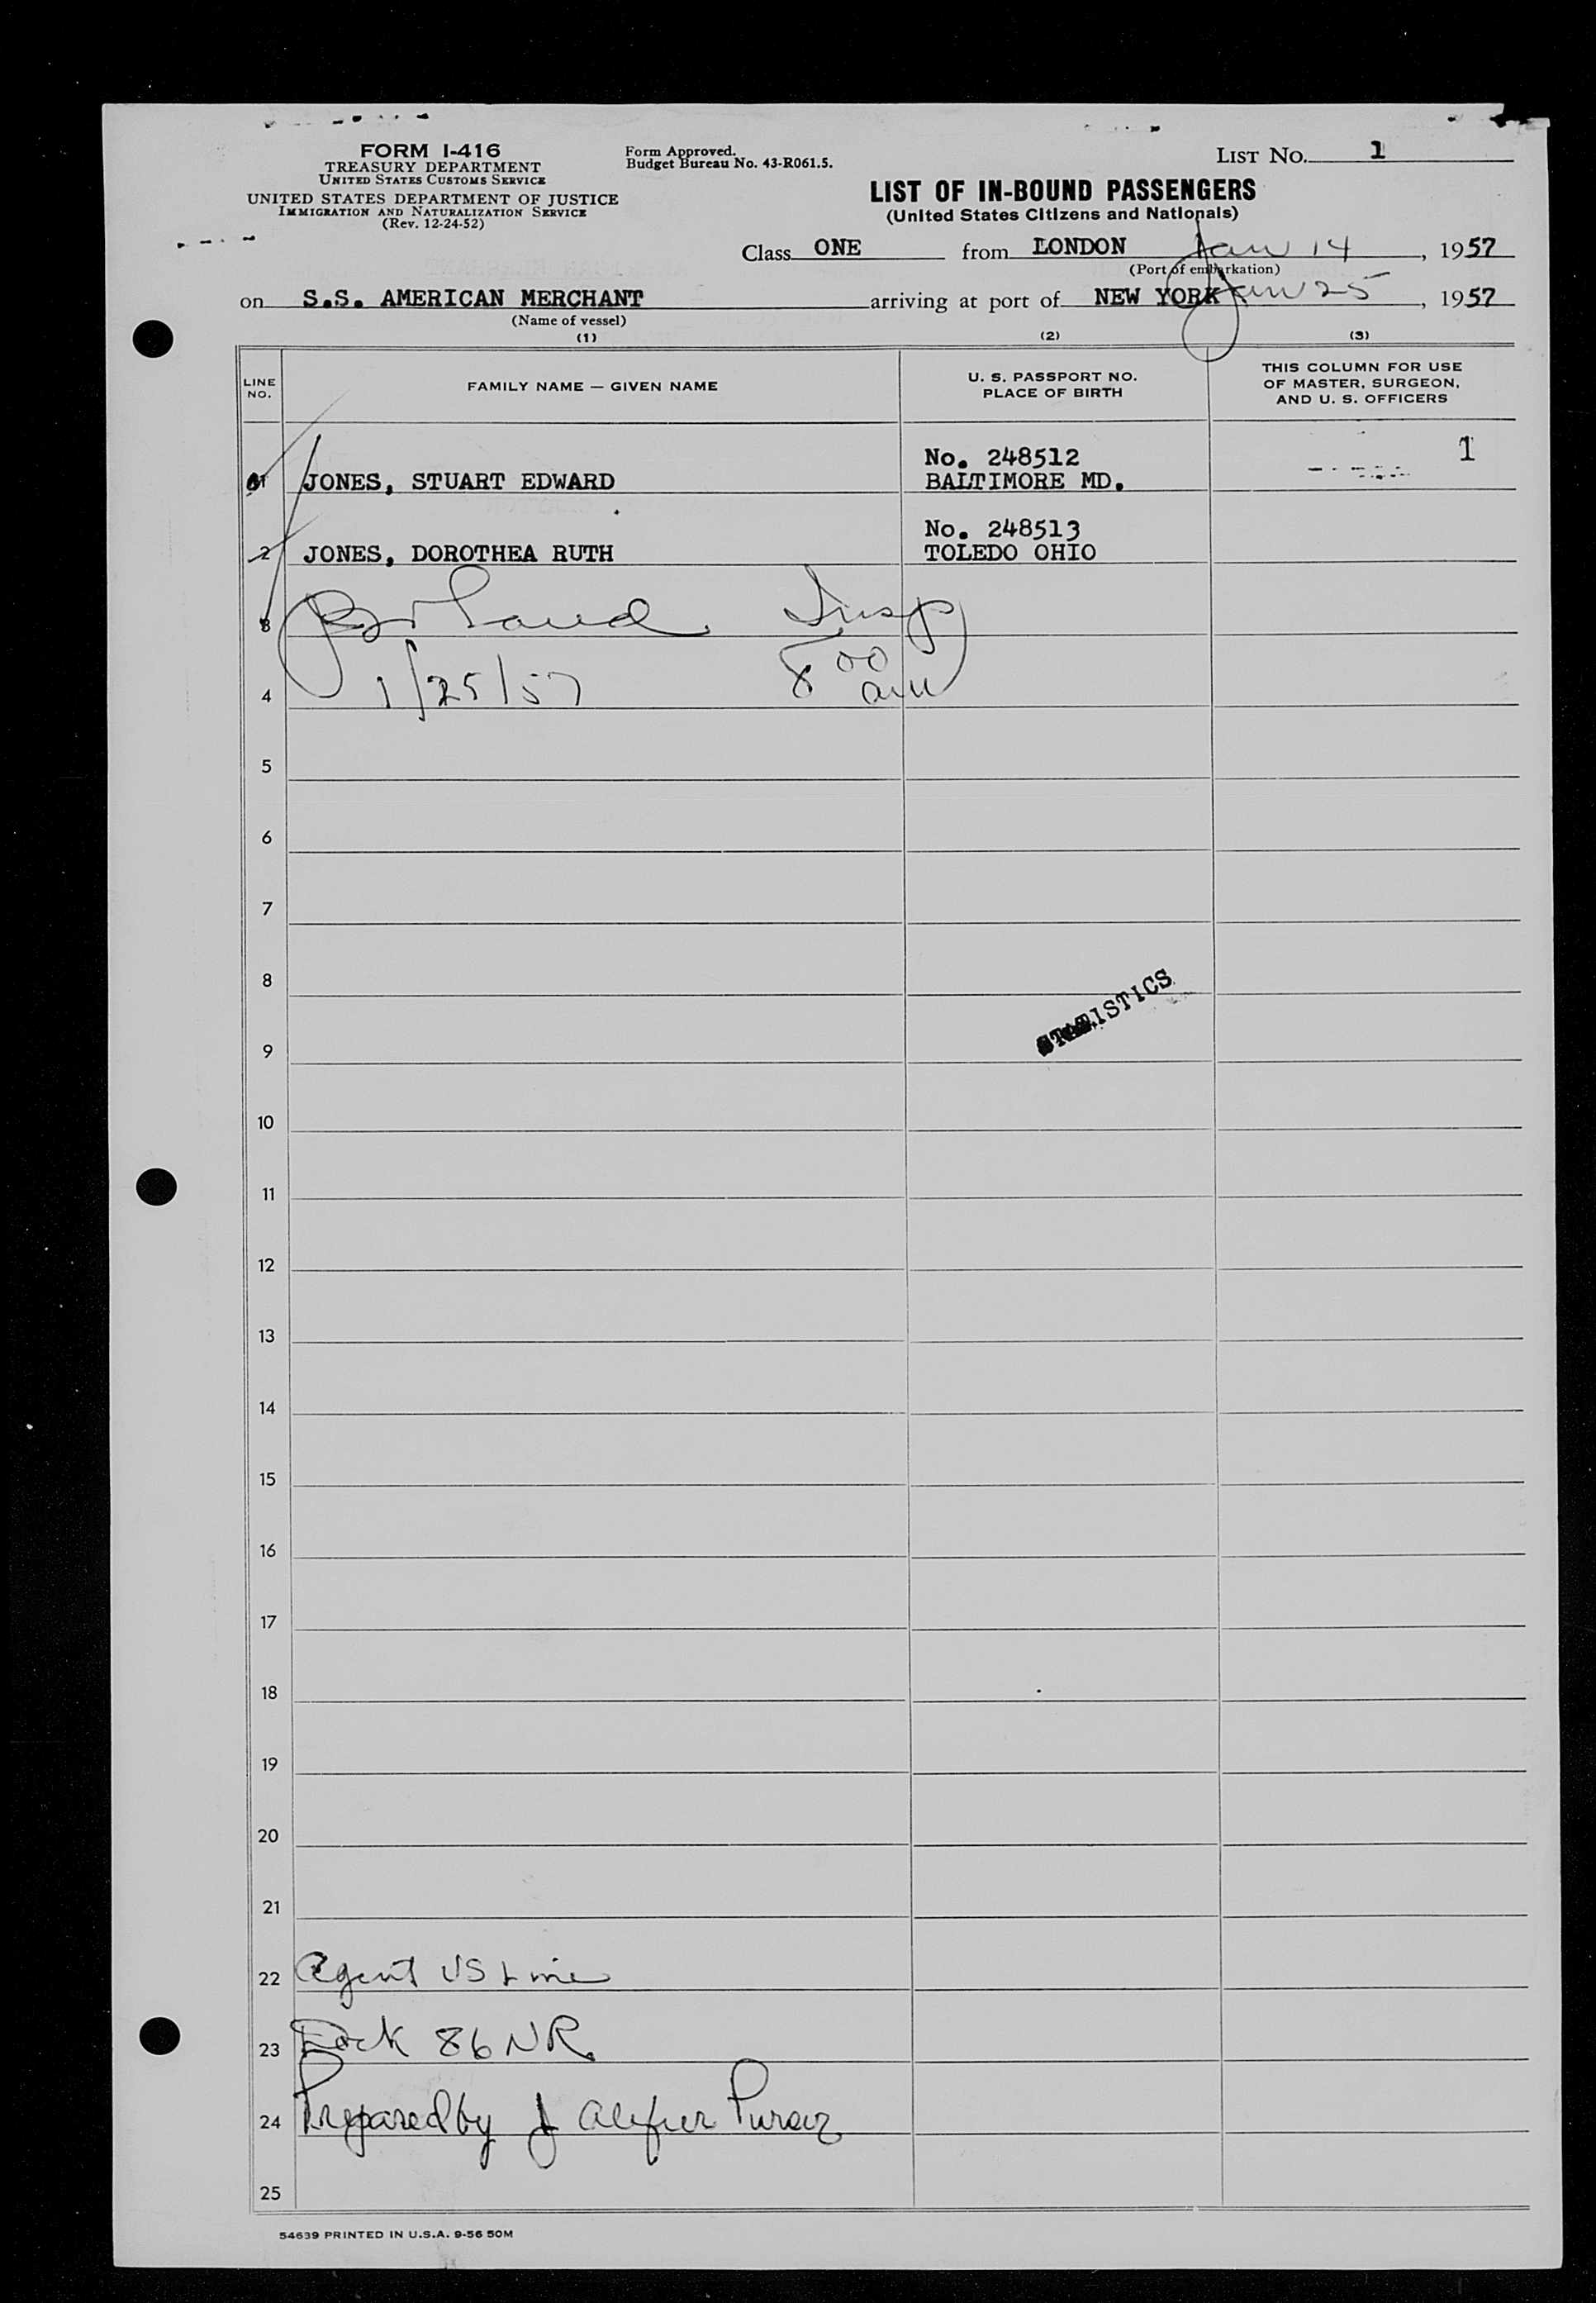 FORM I-416
TREASURY DEPARTMENT
UNITED STATES CUSTOMS SERVICE
UNITED STATES DEPARTMENT OF JUSTICE
IMMIGRATION AND NATURALIZATION SERVICE
(Rev. 12-24-52)
Form Approved.
Budget Bureau No. 43-R061.5.
LIST No. 1
LIST OF IN-BOUND PASSENGERS
(United States Citizens and Nationals)
Class ONE from LONDON Jan 14, 1957
(Port of embarkation)
on S.S. AMERICAN MERCHANT arriving at port of NEW YORK Jan 25, 1957
(Name of vessel)
(1) (2) (3)
LINE NO.
FAMILY NAME — GIVEN NAME
U. S. PASSPORT NO.
PLACE OF BIRTH
THIS COLUMN FOR USE
OF MASTER, SURGEON,
AND U. S. OFFICERS
No. 248512 1
1 JONES, STUART EDWARD BALTIMORE MD.
No. 248513
2 JONES, DOROTHEA RUTH TOLEDO OHIO
3 Insp
4 1/25/57 8 00 am
5
6
7
8
STATISTICS
9
10
11
12
13
14
15
16
17
18
19
20
21
22 Agent US Line
23 Dock 86 NR
24 Prepared by J Purser
25
54639 PRINTED IN U.S.A. 9-56 50M